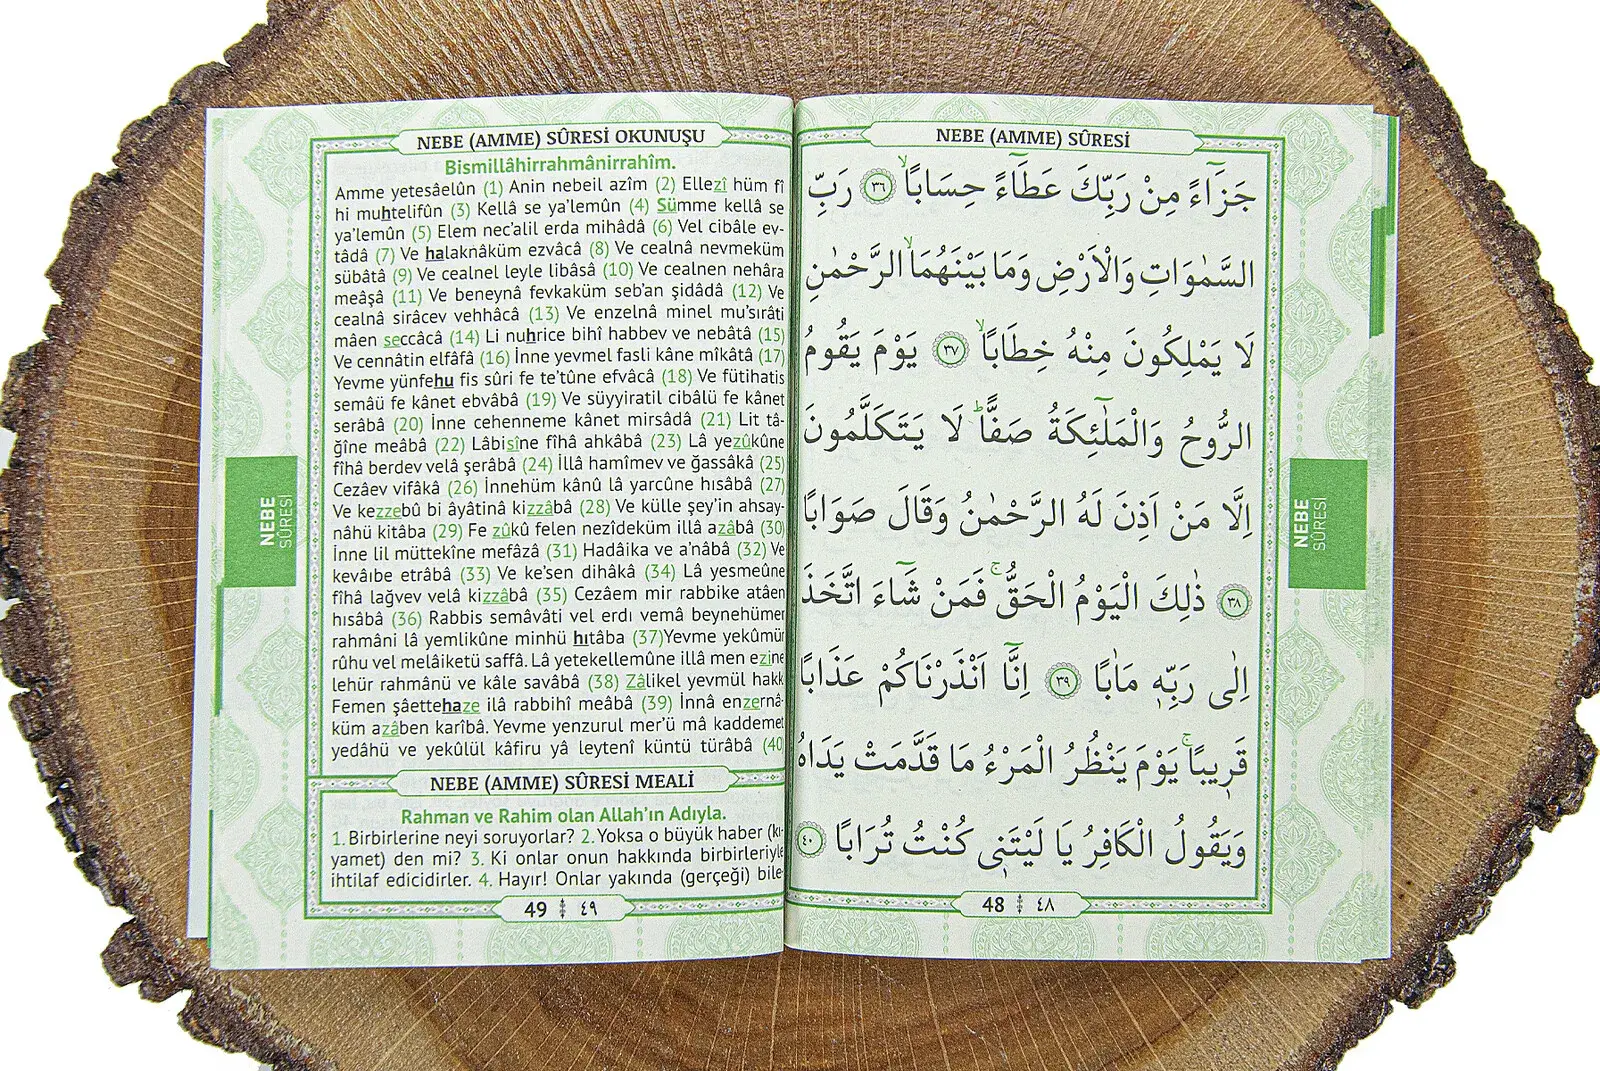 NEBE (AMME) SÛRESİ
جَزَٓاءً مِنْ رَبِّكَ عَطَٓاءً حِسَابًاۙ ﴿٣٦﴾ رَبِّ
السَّمٰوَاتِ وَالْاَرْضِ وَمَا بَيْنَهُمَاۙ الرَّحْمٰنِ
لَا يَمْلِكُونَ مِنْهُ خِطَابًاۙ ﴿٣٧﴾ يَوْمَ يَقُومُ
الرُّوحُ وَالْمَلٰٓئِكَةُ صَفًّاۜ لَا يَتَكَلَّمُونَ
اِلَّا مَنْ اَذِنَ لَهُ الرَّحْمٰنُ وَقَالَ صَوَابًا
﴿٣٨﴾ ذٰلِكَ الْيَوْمُ الْحَقُّۚ فَمَنْ شَٓاءَ اتَّخَذَ
اِلٰى رَبِّه۪ مَاٰبًا ﴿٣٩﴾ اِنَّٓا اَنْذَرْنَاكُمْ عَذَابًا
قَر۪يبًاۚ يَوْمَ يَنْظُرُ الْمَرْءُ مَا قَدَّمَتْ يَدَاهُ
وَيَقُولُ الْكَافِرُ يَا لَيْتَن۪ى كُنْتُ تُرَابًا ﴿٤٠﴾
48 ٤٨
NEBE
SÛRESİ
NEBE (AMME) SÛRESİ OKUNUŞU
Bismillâhirrahmânirrahîm.
Amme yetesâelûn (1) Anin nebeil azîm (2) Ellezî hüm fî
hi muhtelifûn (3) Kellâ se ya'lemûn (4) Sümme kellâ se
ya'lemûn (5) Elem nec'alil erda mihâdâ (6) Vel cibâle ev-
tâdâ (7) Ve halaknâküm ezvâcâ (8) Ve cealnâ nevmeküm
sübâtâ (9) Ve cealnel leyle libâsâ (10) Ve cealnen nehâra
meâşâ (11) Ve beneynâ fevkaküm seb'an şidâdâ (12) Ve
cealnâ sirâcev vehhâcâ (13) Ve enzelnâ minel mu'sırâti
mâen seccâcâ (14) Li nuhrice bihî habbev ve nebâtâ (15)
Ve cennâtin elfâfâ (16) İnne yevmel fasli kâne mîkâtâ (17)
Yevme yünfehu fis sûri fe te'tûne efvâcâ (18) Ve fütihatis
semâü fe kânet ebvâbâ (19) Ve süyyiratil cibâlü fe kânet
serâbâ (20) İnne cehenneme kânet mirsâdâ (21) Lit tâ-
ğîne meâbâ (22) Lâbisîne fîhâ ahkâbâ (23) Lâ yezûkûne
fîhâ berdev velâ şerâbâ (24) İllâ hamîmev ve ğassâkâ (25)
Cezâev vifâkâ (26) İnnehüm kânû lâ yarcûne hısâbâ (27)
Ve kezzebû bi âyâtinâ kizzâbâ (28) Ve külle şey'in ahsay-
nâhü kitâba (29) Fe zûkû felen nezîdeküm illâ azâbâ (30)
İnne lil müttekîne mefâzâ (31) Hadâika ve a'nâbâ (32) Ve
kevâıbe etrâbâ (33) Ve ke'sen dihâkâ (34) Lâ yesmeûne
fîhâ lağvev velâ kizzâbâ (35) Cezâem mir rabbike atâen
hısâbâ (36) Rabbis semâvâti vel erdı vemâ beynehümer
rahmâni lâ yemlikûne minhü hıtâba (37)Yevme yekûmür
rûhu vel melâiketü saffâ. Lâ yetekellemûne illâ men ezine
lehür rahmânü ve kâle savâbâ (38) Zâlikel yevmül hakk
Femen şâettehaze ilâ rabbihî meâbâ (39) İnnâ enzernâ-
küm azâben karîbâ. Yevme yenzurul mer'ü mâ kaddemet
yedâhü ve yekûlül kâfiru yâ leytenî küntü türâbâ (40)
NEBE (AMME) SÛRESİ MEALİ
Rahman ve Rahim olan Allah'ın Adıyla.
1. Birbirlerine neyi soruyorlar? 2. Yoksa o büyük haber (kı-
yamet) den mi? 3. Ki onlar onun hakkında birbirleriyle
ihtilaf edicidirler. 4. Hayır! Onlar yakında (gerçeği) bile-
49 ٤٩
NEBE
SÛRESİ